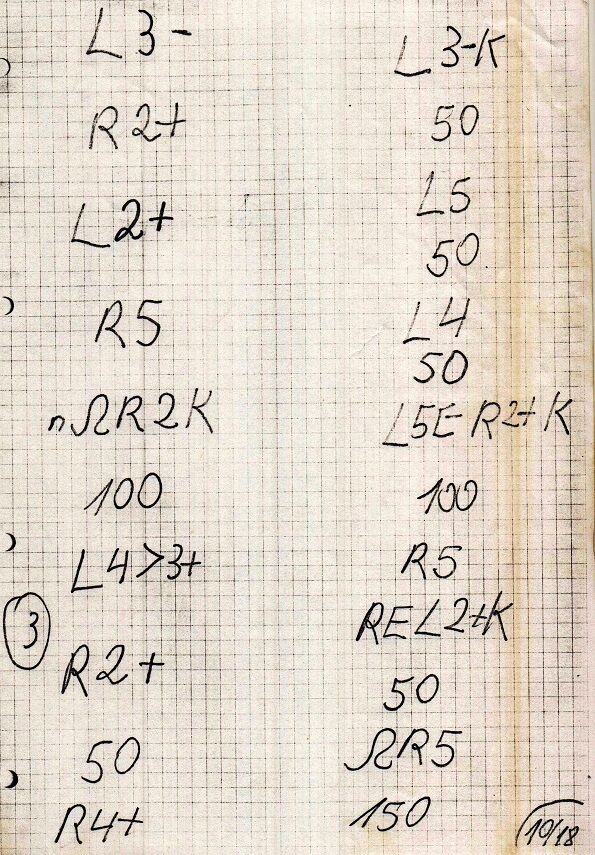 L 3-
R 2+
L 2+
R 5
n Ω R 2 K
100
L 4 > 3+
3
R 2 +
50
R4+
L 3-K
50
L5
50
L4
50
L5E R2+ K
100
R5
REL2+K
50
ΩR5
150
10/18